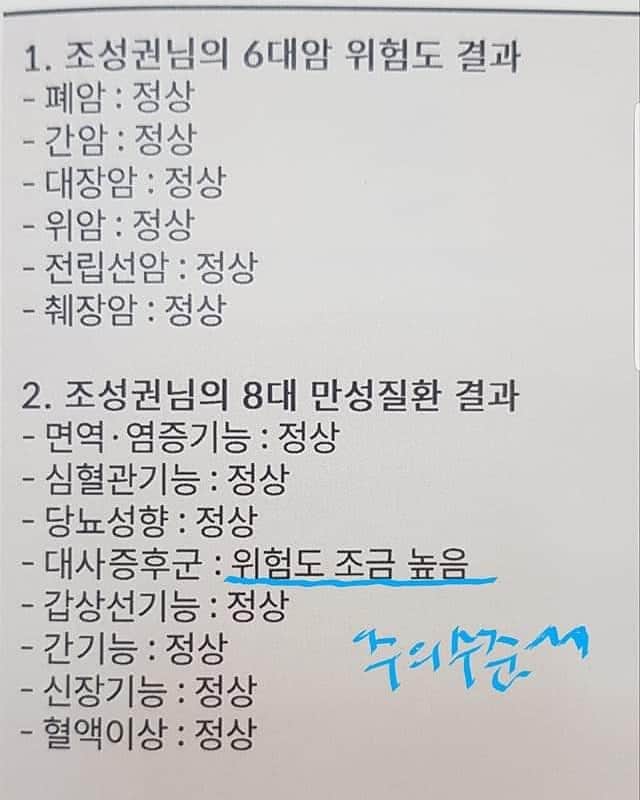 1. 조성권님의 6대암 위험도 결과
- 폐암 : 정상
- 간암 : 정상
- 대장암 : 정상
- 위암 : 정상
- 전립선암 : 정상
- 췌장암 : 정상
2. 조성권님의 8대 만성질환 결과
- 면역·염증기능 : 정상
- 심혈관기능 : 정상
- 당뇨성향 : 정상
- 대사증후군 : 위험도 조금 높음
- 갑상선기능 : 정상
- 간기능 : 정상
주의수준
- 신장기능 : 정상
- 혈액이상 : 정상